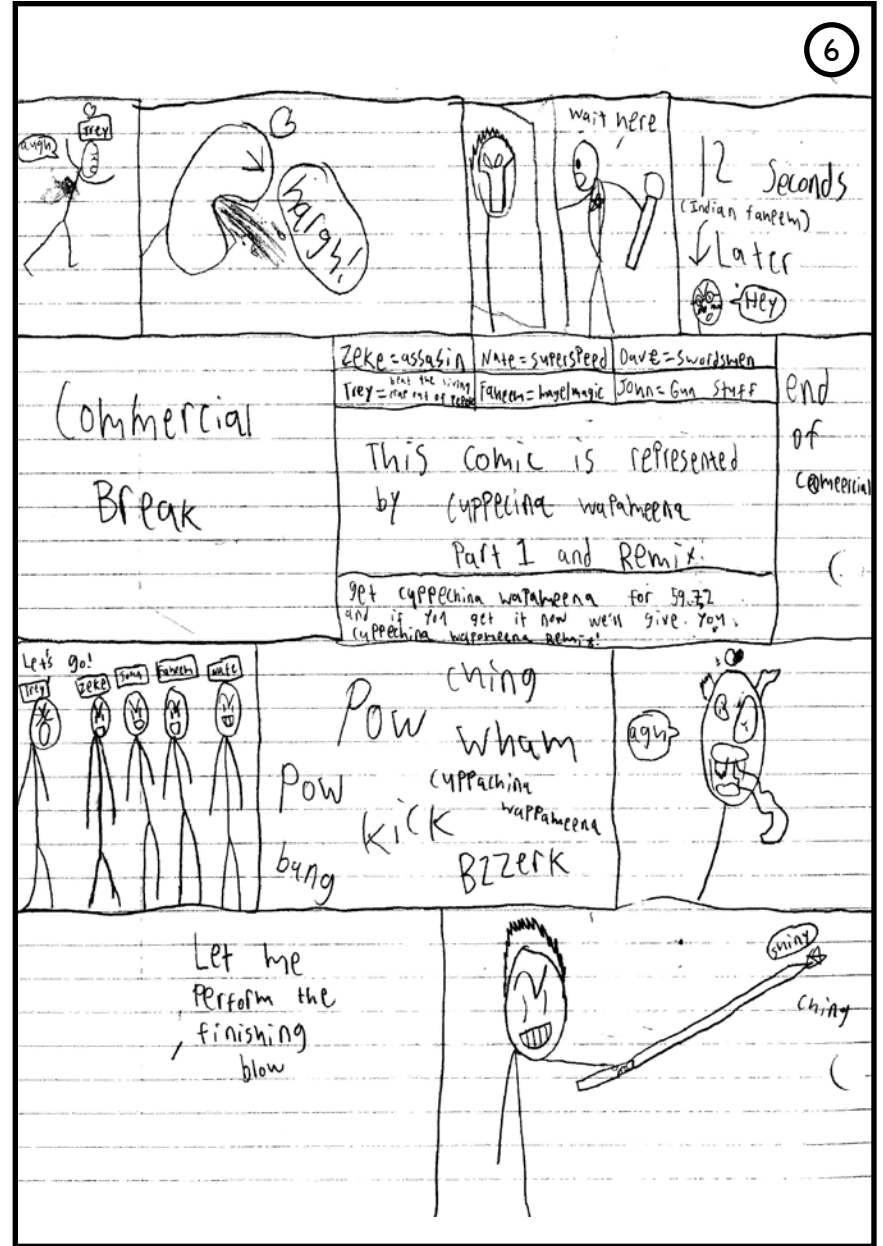 6
augh
Trey
hargh!
wait here
12 Seconds
(Indian faneem)
Later
Hey
Commercial
Break
Zeke=assasin
Nate=superspeed
Dave=Swordsmen
Trey=beat the living
crap out of people
Faneem=mage/magic
John=Gun Stuff
This comic is represented
by cuppecina wapameena
Part 1 and Remix.
get cuppechina wapameena for 59.72
and if you get it now we'll give you
cuppechina wapameena Remix!
end
of
comeercial
Let's go!
Trey
Zeke
John
Faneem
Nate
ching
Pow
wham
Pow
cuppachina
wappameena
kick
bang
Bzzerk
agh
Let me
Perform the
finishing
blow
shiny
ching